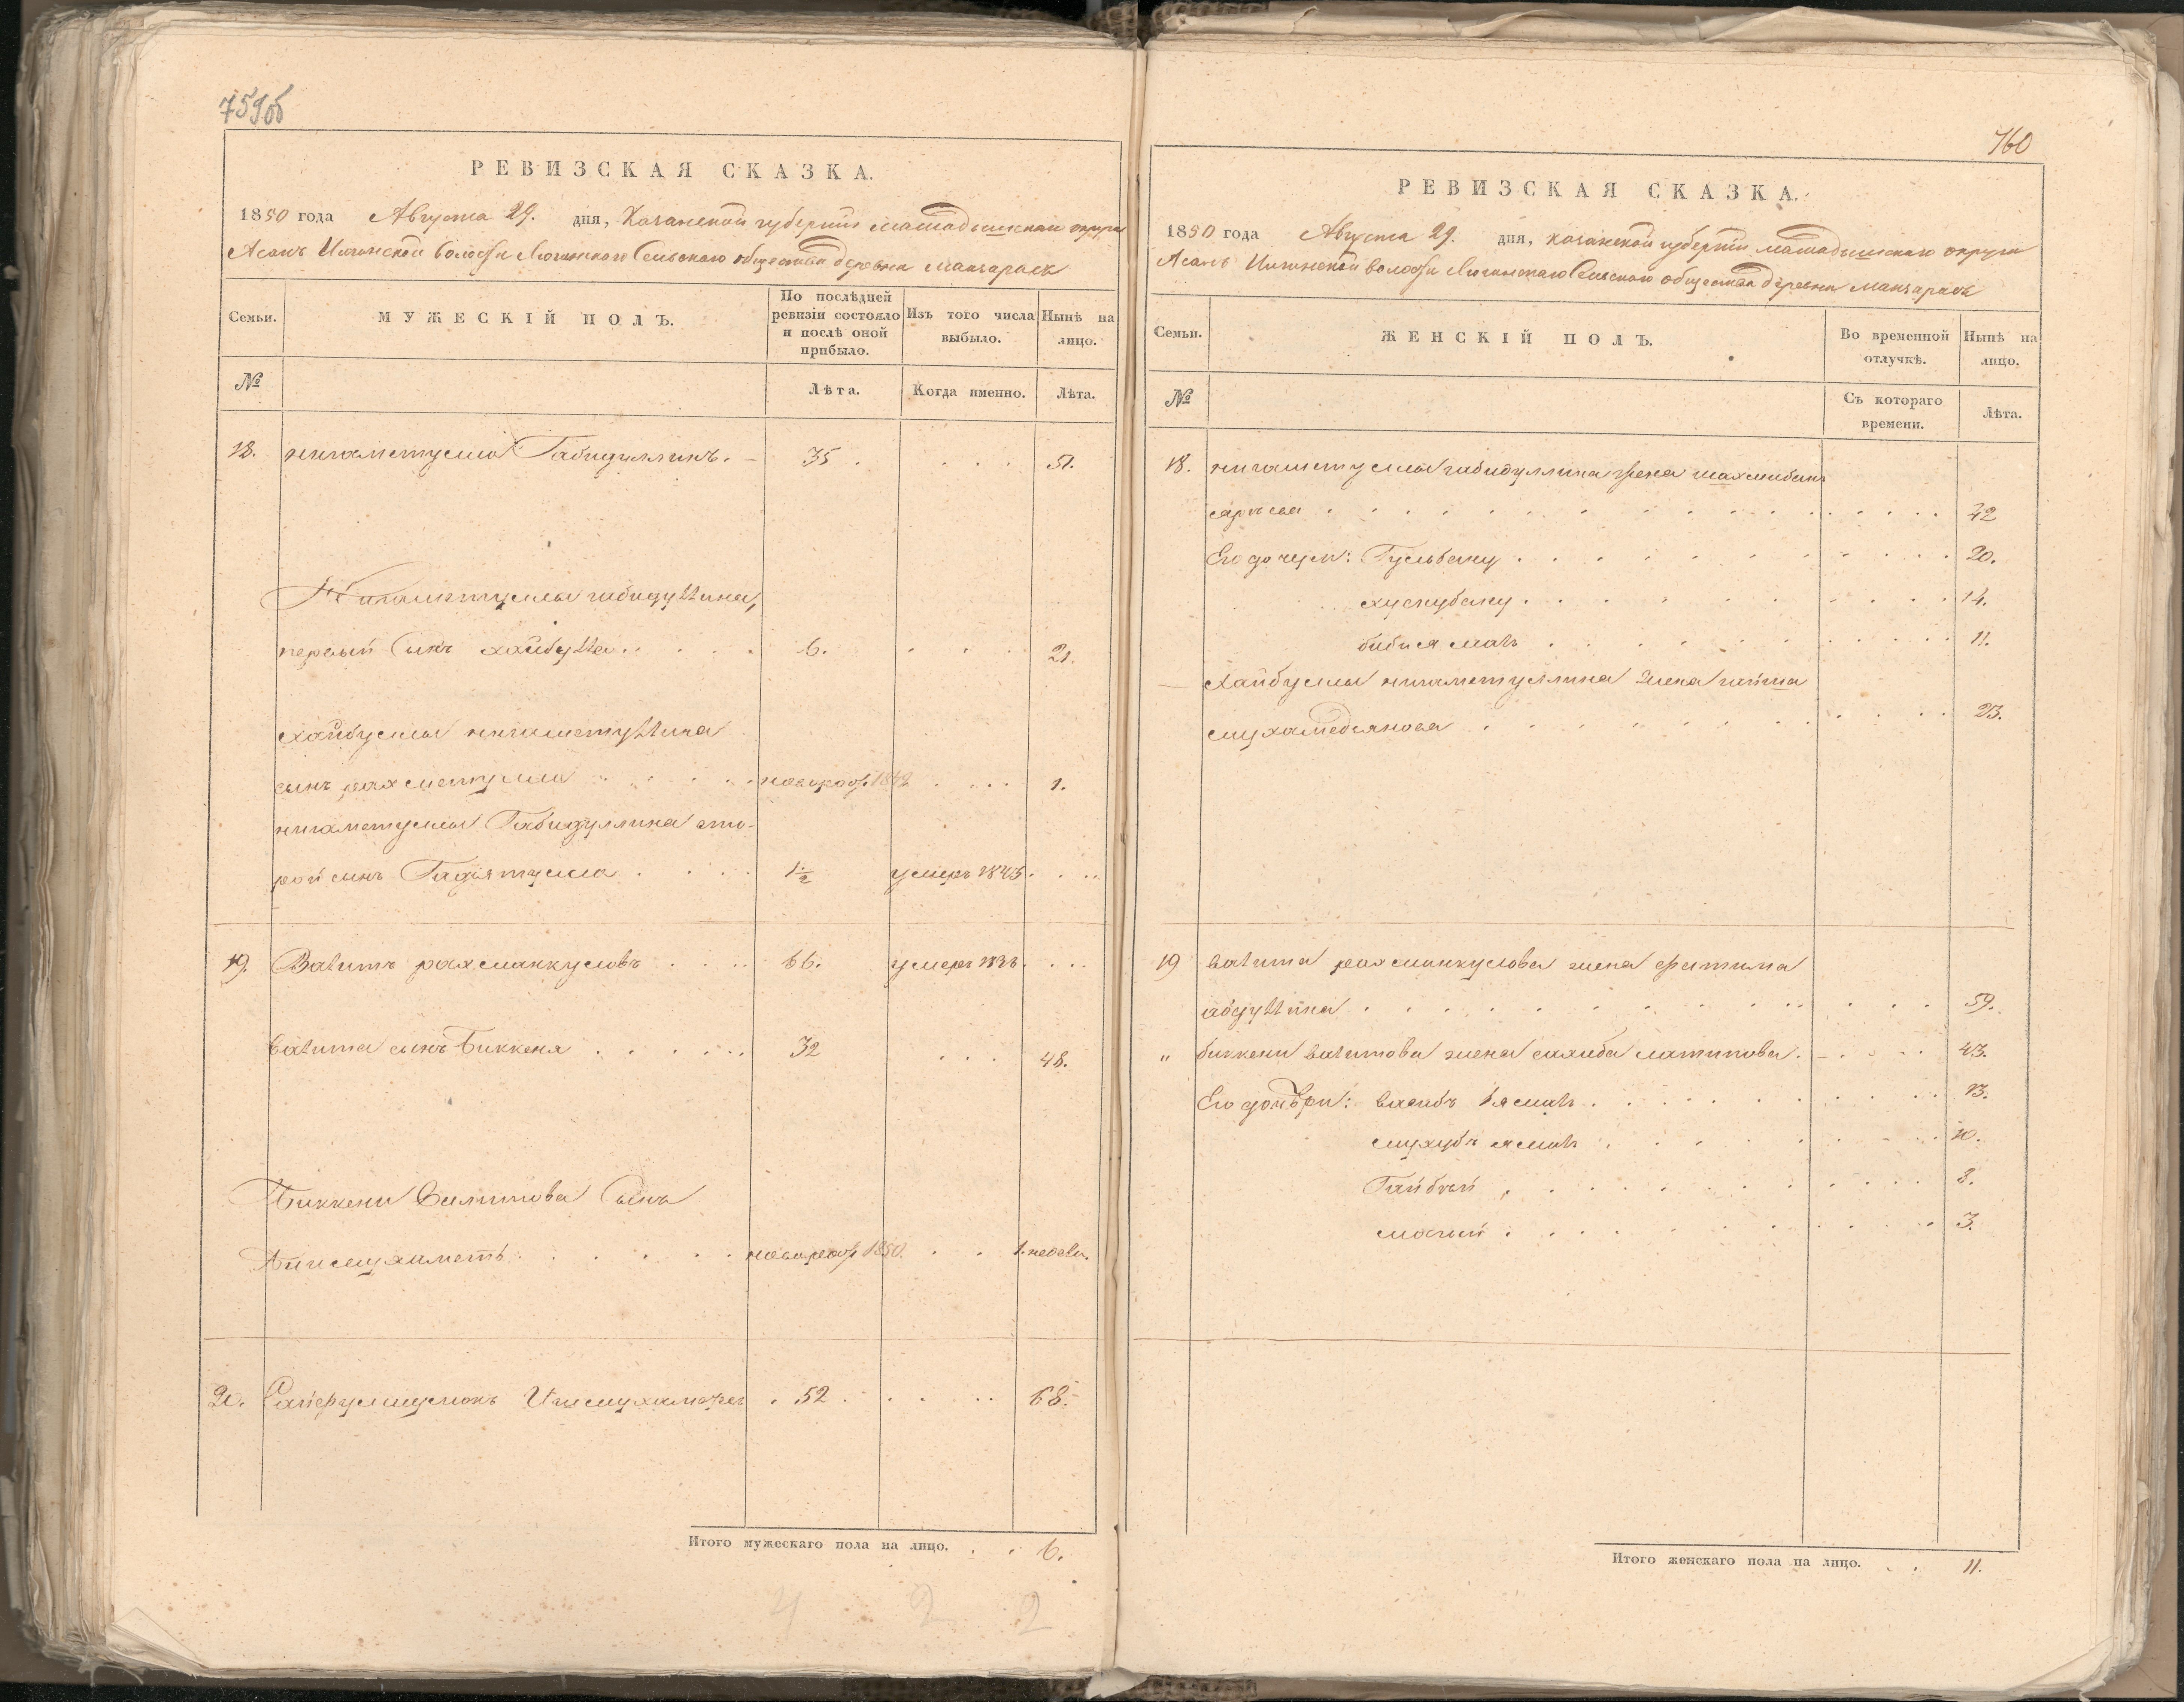 759об
РЕВИЗСКАЯ СКАЗКА.
1850 года Августа 29. дня, Казанской губернiи Мамадышскаго округа
Асанъ Илгинской волости Сельскаго общества деревни Манзарасъ
Семьи.
МУЖЕСКIЙ ПОЛЪ.
По послѣдней ревизiи состояло и послѣ оной прибыло.
Изъ того числа выбыло.
Нынѣ на лицо.
№
Лѣта.
Когда именно.
Лѣта.
18. нигаметулла Габидуллинъ. 35. 51.
Нигаметуллы габидуллина,
первый сынъ хайбулла 6. 21.
хайбуллы нигаметуллина
сынъ рахметулла новорож. 1849 1.
нигаметуллы Габидуллина вто-
рой сынъ Гадiятулла 1 1/2 умеръ 1843
19. Валитъ рахманкуловъ 66. умеръ 1836
валита сынъ Биккеня 32 48.
Биккени Валитова Сынъ
новорож 1850. 1. недели.
20. Сайфулмулюкъ Ишмухаметевъ 52 68.
Итого мужескаго пола на лицо. 6.
4 2 2
760
РЕВИЗСКАЯ СКАЗКА.
1850 года Августа 29. дня, казанской губернiи мамадышскаго округа
Асанъ Илгинской волости Сельскаго общества деревни манзарасъ
Семьи.
ЖЕНСКIЙ ПОЛЪ.
Во временной отлучкѣ.
Нынѣ на лицо.
№
Съ котораго времени.
Лѣта.
18. нигаметуллы габидуллина жена
42
Его дочери: Гульбану 20.
хуснубану 14.
бибиямалъ 11.
хайбуллы нигаметуллина жена гайша
мухамедьянова 23.
19 валита рахманкулова жена фатима
абдуллина 59.
" биккени валитова жена сахиба латыпова. 43.
Его дочери: васибъ ямалъ 13.
мухубъ ямалъ 10.
Гайбiй 8.
3.
Итого женскаго пола на лицо. 11.